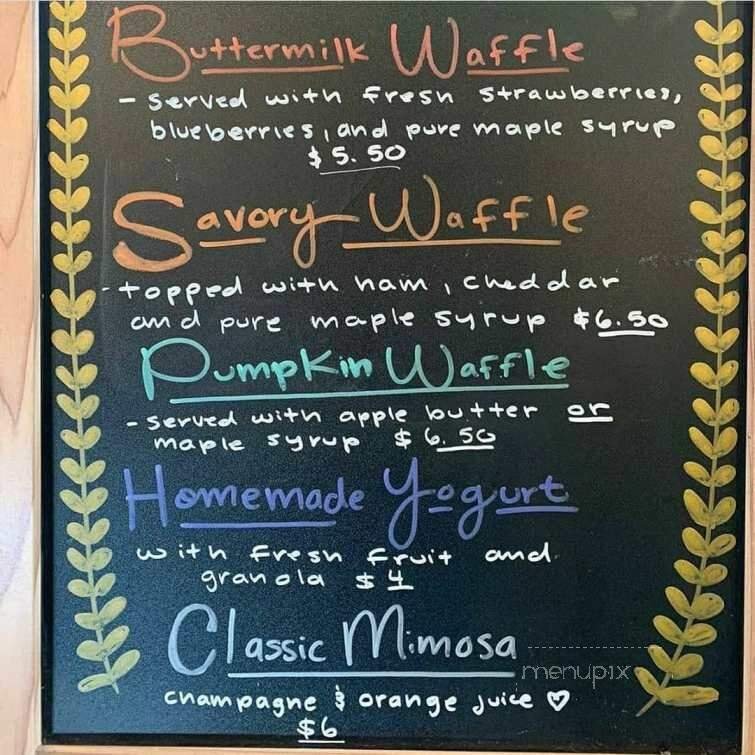 Buttermilk Waffle
- served with fresh strawberries,
blueberries, and pure maple syrup
$5.50
Savory Waffle
- topped with ham, cheddar
and pure maple syrup $6.50
Pumpkin Waffle
- served with apple butter or
maple syrup $6.50
Homemade Yogurt
with fresh fruit and
granola $4
Classic Mimosa
menupix
champagne & orange juice ♡
$6